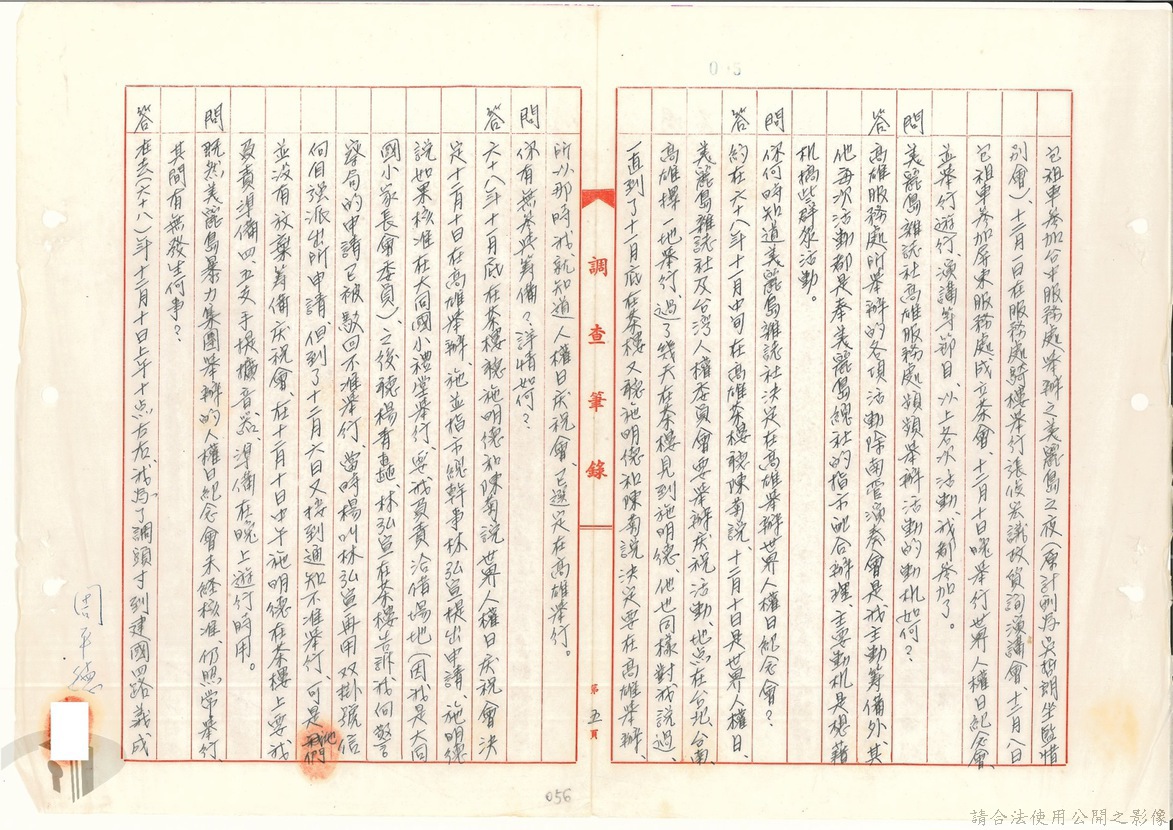 0 5
包租車參加台中服務處舉辦之美麗島之夜(原計劃為吳哲朗坐監惜
別會)、十二月一日在服務處騎樓舉行張俊宏議政質詢演講會、十二月八日
包租車參加屏東服務處成立茶會、十二月十日晚舉行世界人權日紀念會、
並舉行遊行、演講等節目、以上各次活動、我都參加了。
問 美麗島雜誌社高雄服務處頻頻舉辦活動的動机如何?
答 高雄服務處所舉辦的各項活動除南管演奏會是我主動籌備外、其
他再次活動都是奉美麗島總社的指示配合辦理、主要動机是想藉
机搞些群眾活動。
問 你何時知道美麗島雜誌社決定在高雄舉辦世界人權日紀念會?
答 約在六十八年十一月中旬在高雄茶樓聽陳菊說、十二月十日是世界人權日、
美麗島雜誌社及台灣人權委員會要舉辦庆祝活動、地点在台北、台南、
高雄擇一地舉行、過了幾天在茶樓見到施明德、他也同樣對我說過、
一直到了十一月底在茶樓又聽施明德和陳菊說決定要在高雄舉辦、
調查筆錄
第五頁
所以那時我就知道人權日庆祝會、已選定在高雄舉行。
問 你有無參與籌備?詳情如何?
答 六十八年十一月底在茶樓聽施明德和陳菊說世界人權日庆祝會決
定十二月十日在高雄舉辦、施並指示總幹事林弘宣提出申請、施明德
說如果核准在大同國小禮堂舉行、要我負責洽借場地(因我是大同
國小家長會委員)、之後聽楊青矗、林弘宣在茶樓告訴我向警
察局的申請已被駁回不准舉行、當時楊叫林弘宣再用双掛號信
向佰強派出所申請、但到了十二月六日又接到通知不准舉行、可是他們
並沒有放棄籌備庆祝會、在十二月十日中午施明德在茶樓上要我
負責準備四、五支手提擴音器、準備在晚上遊行時用。
問 既然美麗島暴力集團舉辦的人權日紀念會未經核准仍照常舉行、
其間有無發生何事?
答 在去(六十八)年十二月十日上午十点左右、我為了調頭寸到建國四路義成
周平德
056
請合法使用公開之影像